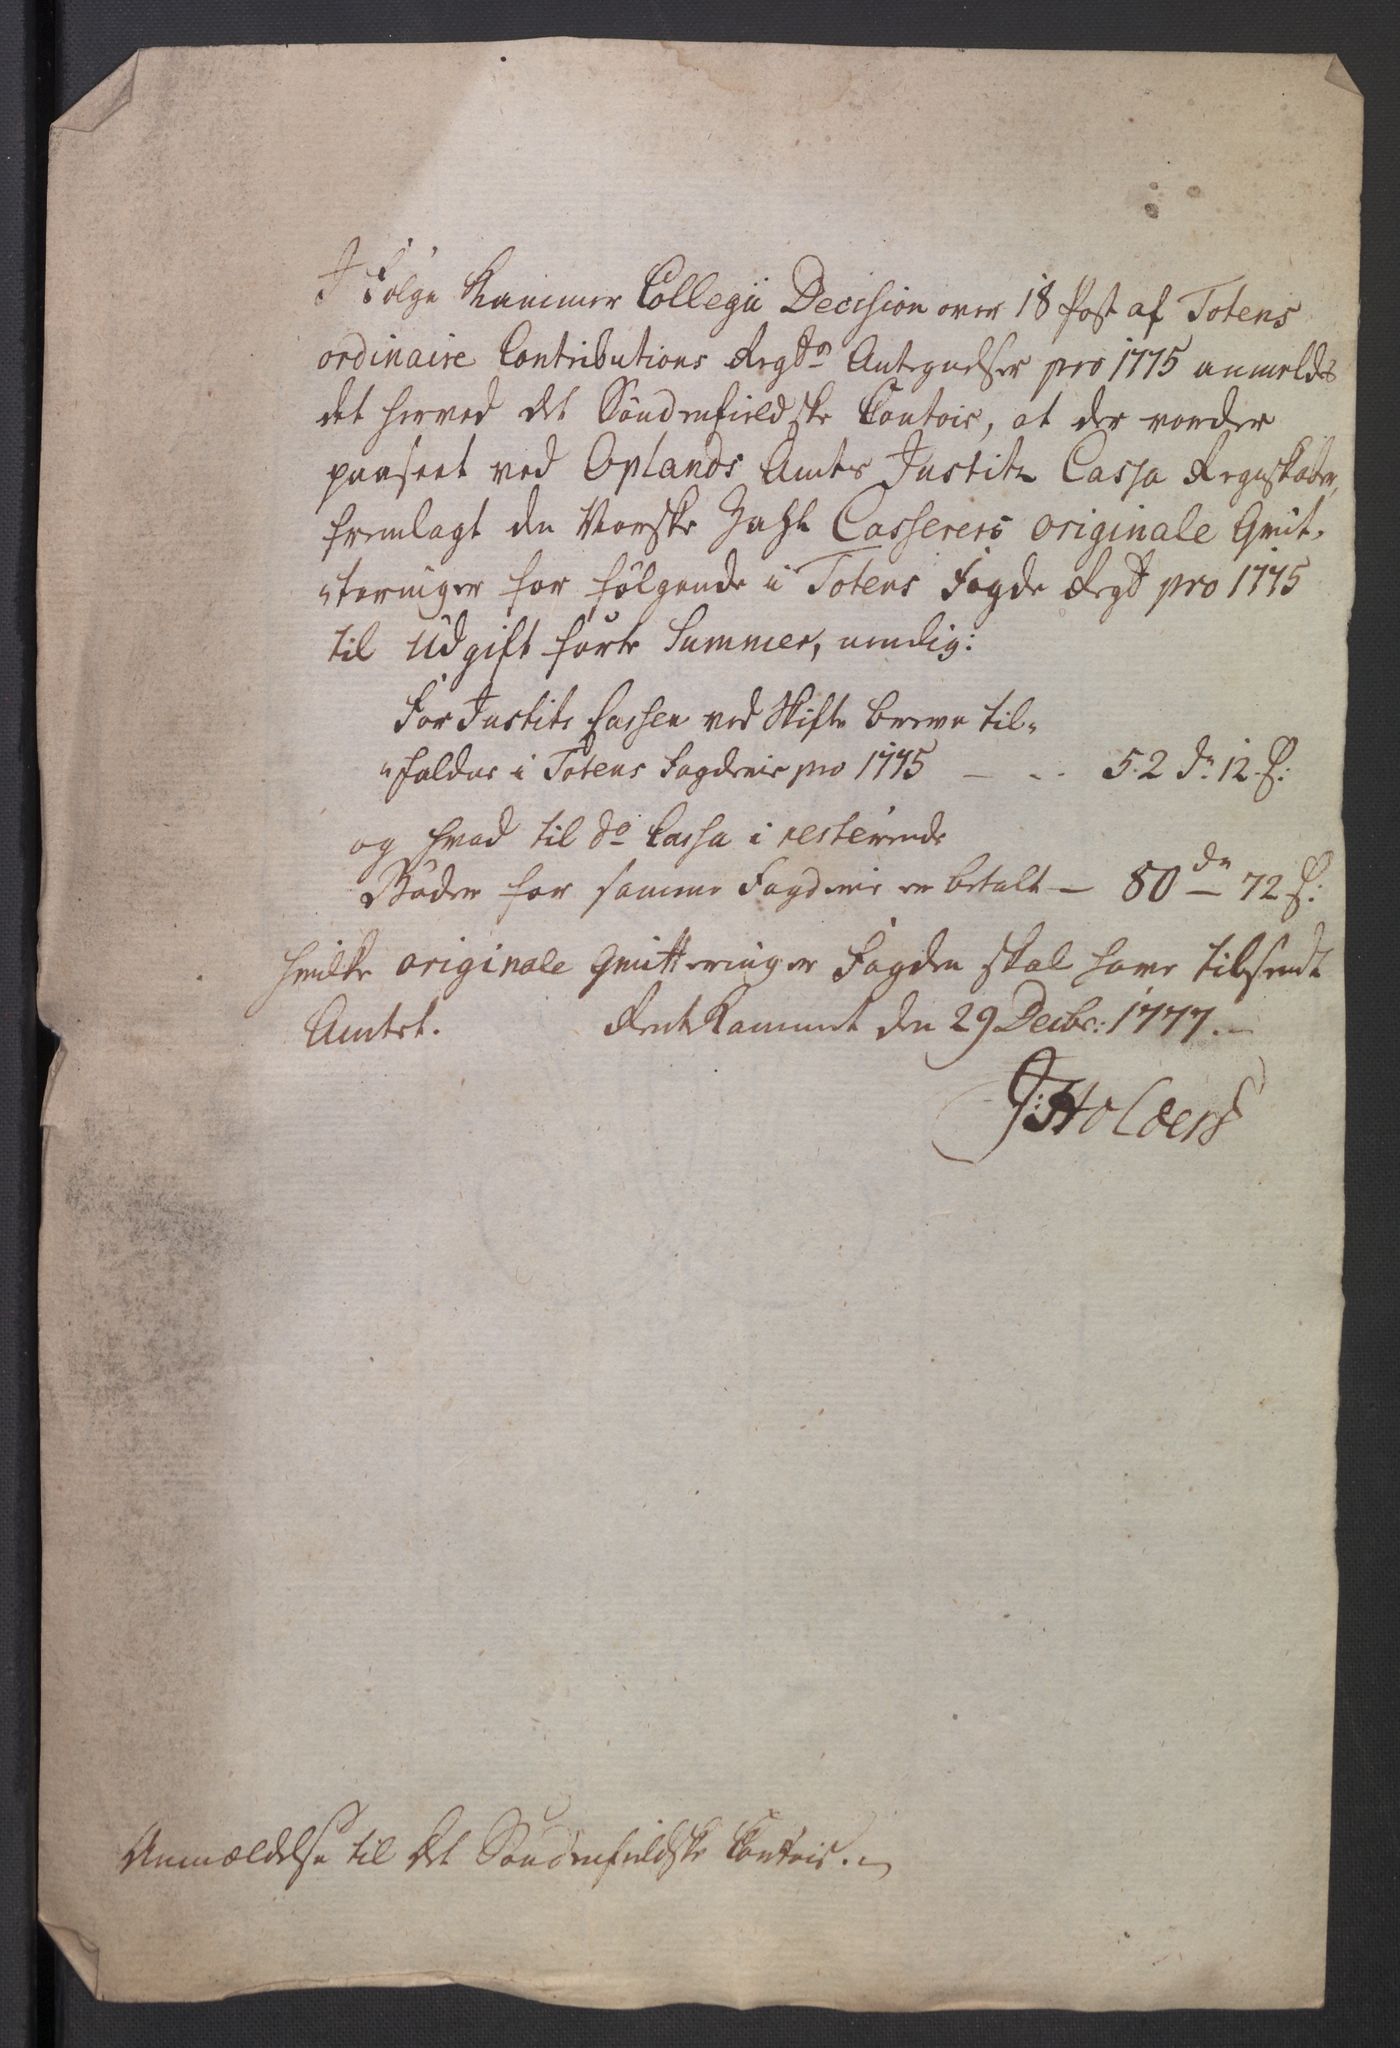 I Følge Kammer Collegii Decision over 18 Post af Totens
ordinaire Contributions Regsk: Antegnelser pro 1775 anmeldes
det herved det Söndenfieldske Contoir, at der vorder
passeret ved Oplands Amts Justitz Cassa Regnskaber,
fremlagt den Norske Zahl Casserers originale Qvit-
"teringer for følgende i Totens Fogde Regsk pro 1775
til Udgift førte Summer, nemlig:
For Justits Cassen ved Skifte breve til-
"faldne i Totens Fogderie pro 1775 — - - 52 dr 12 s:
og hvad til do Cassa i resterende
Bøder for samme Fogderie er betalt — 80 dr 72 s:
hvilke originale Qvitteringer Fogden skal have tilsendt
Amtet. RenteKammeret den 29 Decbr: 1777. —
J: Holdersd
Anmældelse til det Söndenfieldske Contoir.